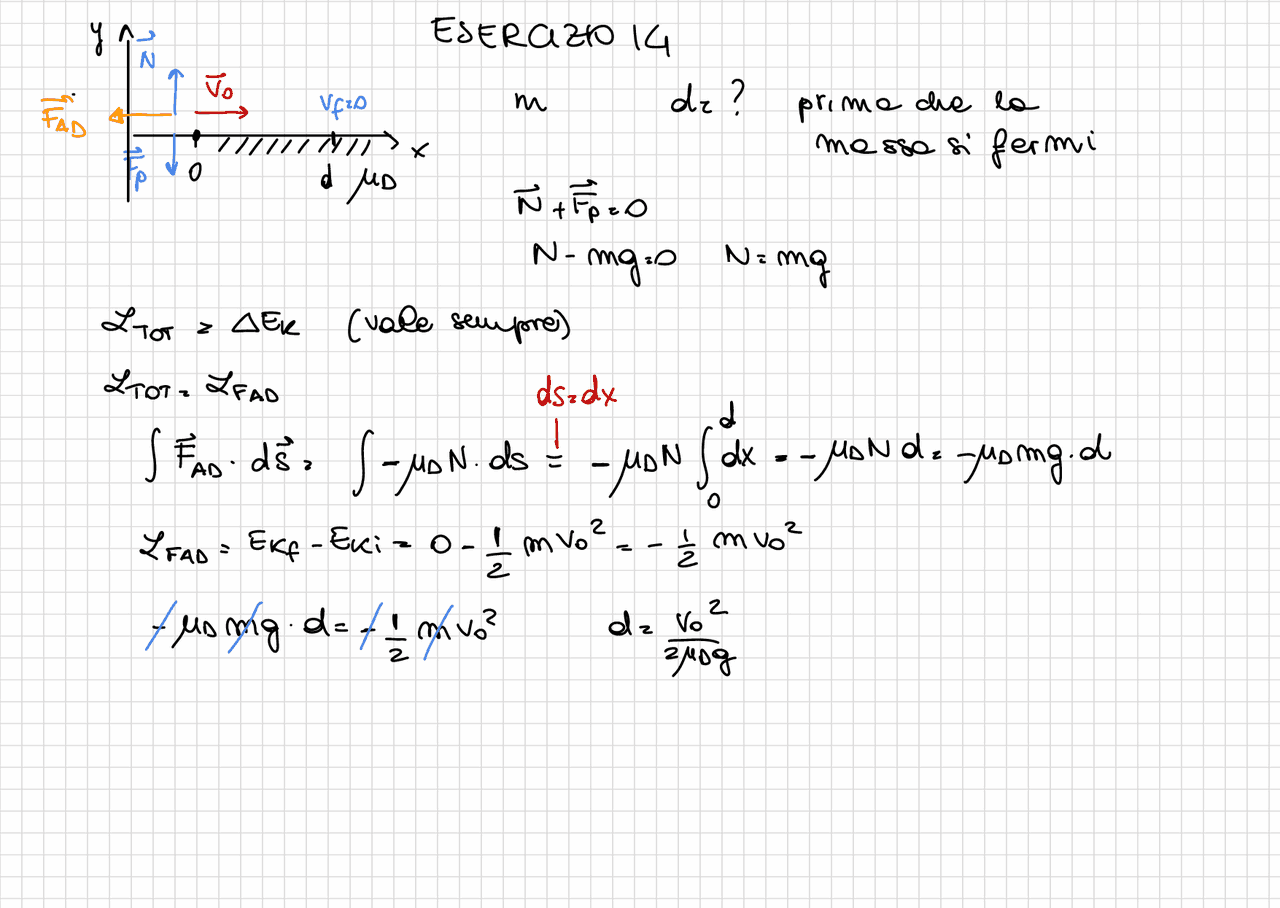 ESERCIZIO 14
y
N⃗
v⃗₀
v_f=0
F⃗_AD
F⃗_P
0
d
μ_D
x
m    d=?    prima che la
massa si fermi
N⃗ + F⃗_P = 0
N - mg = 0    N = mg
ℒ_TOT = ΔE_K    (vale sempre)
ℒ_TOT = ℒ_FAD
ds=dx
∫ F⃗_AD · ds⃗ = ∫ -μ_D N · ds = -μ_D N ∫₀^d dx = -μ_D N d = -μ_D mg · d
ℒ_FAD = E_Kf - E_Ki = 0 - 1/2 m v₀² = - 1/2 m v₀²
- μ_D mg · d = - 1/2 m v₀²    d = v₀² / 2μ_D g